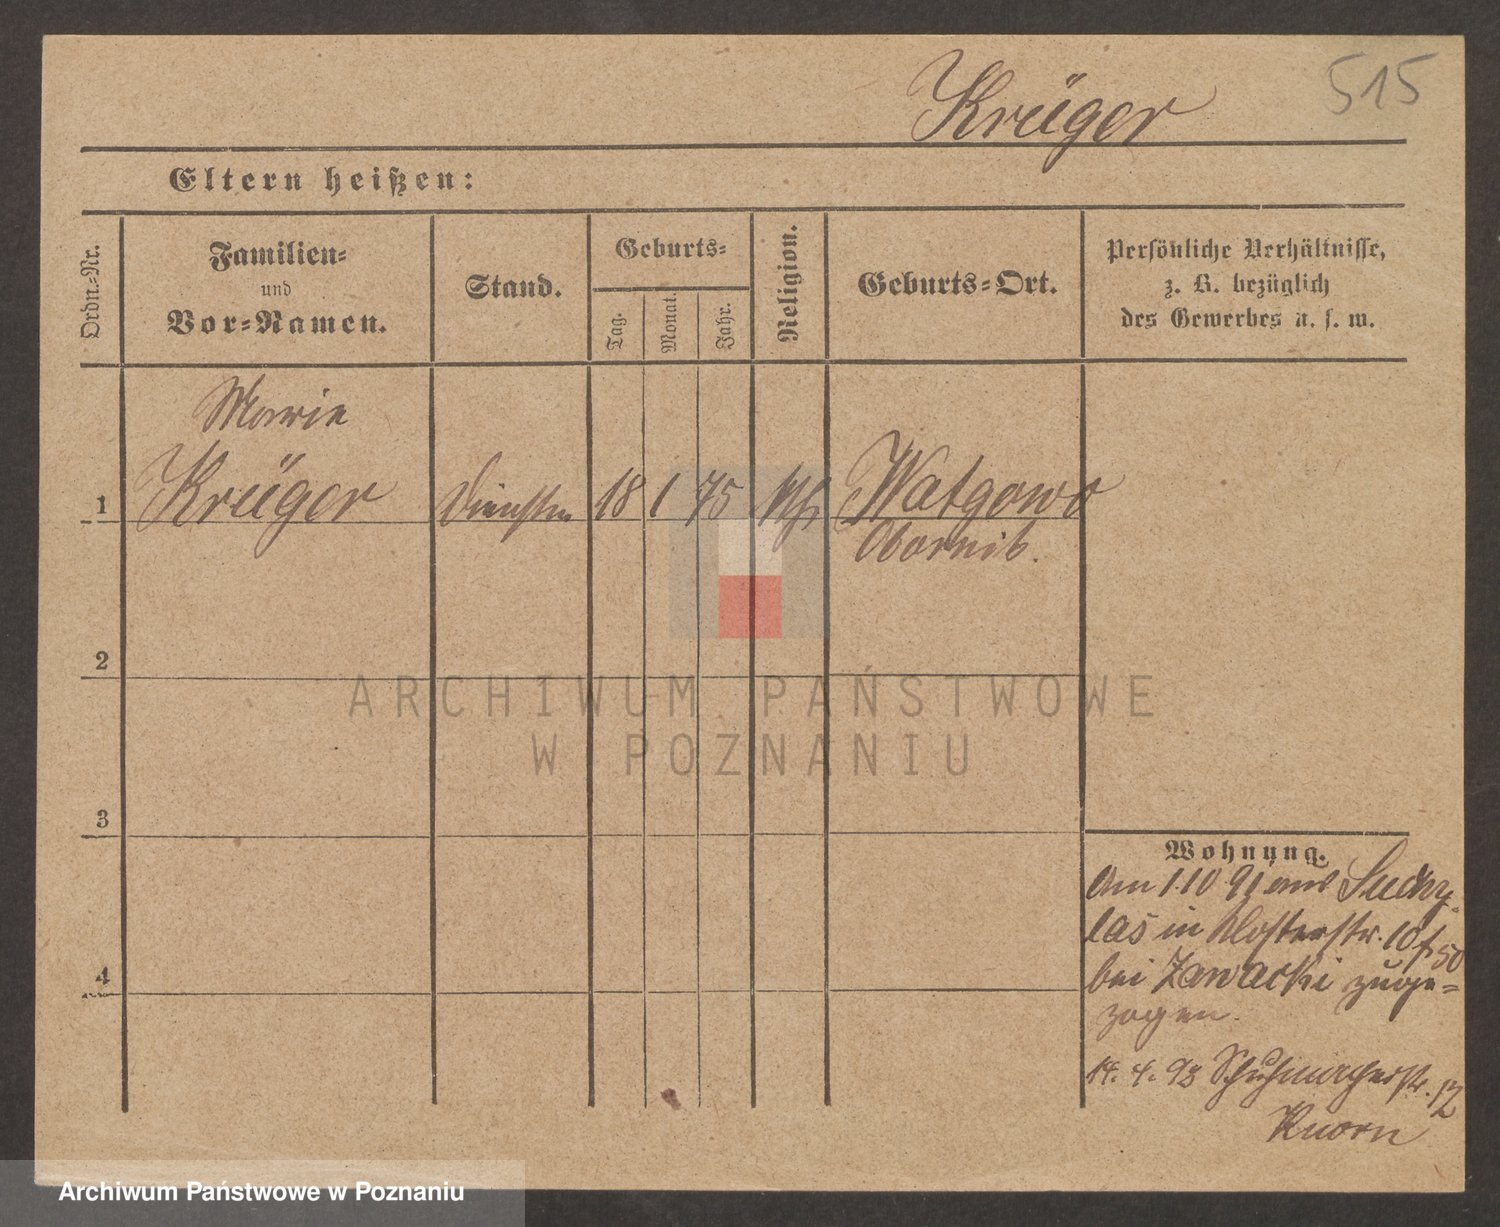 Krüger
515
Eltern heißen:
Ordn.-Nr.
Familien-
und
Vor-Namen.
Stand.
Geburts-
Tag.
Monat.
Jahr.
Religion.
Geburts-Ort.
Persönliche Verhältnisse,
z. B. bezüglich
des Gewerbes u. s. w.
Marie
1 Krüger 18 1 75 Wargowo
Obornik.
2
3
4
ARCHIWUM PAŃSTWOWE
W POZNANIU
Wohnung.
Am 1 10 91 aus Suchy-
las in Klosterstr. 10
bei Zawacki zuge-
zogen.
14. 4. 93 Schuhmacherstr. 12
Knorn
Archiwum Państwowe w Poznaniu